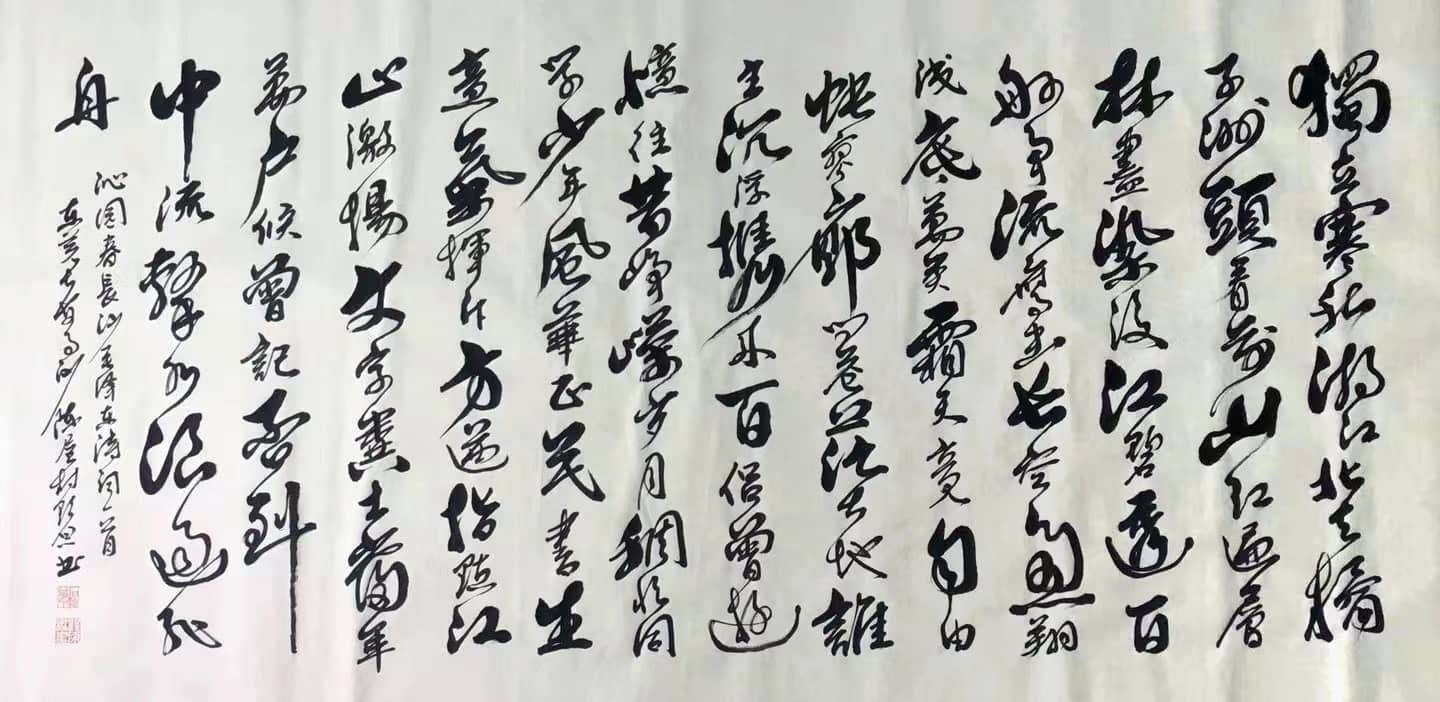 獨立寒秋湘江北去橘
子洲頭看萬山红遍層
林盡染漫江碧透百
舸爭流鷹击长空魚翔
浅底萬类霜天竟自由
悵寥廓問蒼茫大地誰
主沉浮攜来百侣曾游
憶往昔崢嶸岁月稠恰同
学少年風華正茂書生
意氣揮斥方遒指點江
山激揚文字糞土當年
萬户侯曾記否到
中流擊水浪遏飛
舟
沁園春長沙毛澤东诗詞一首